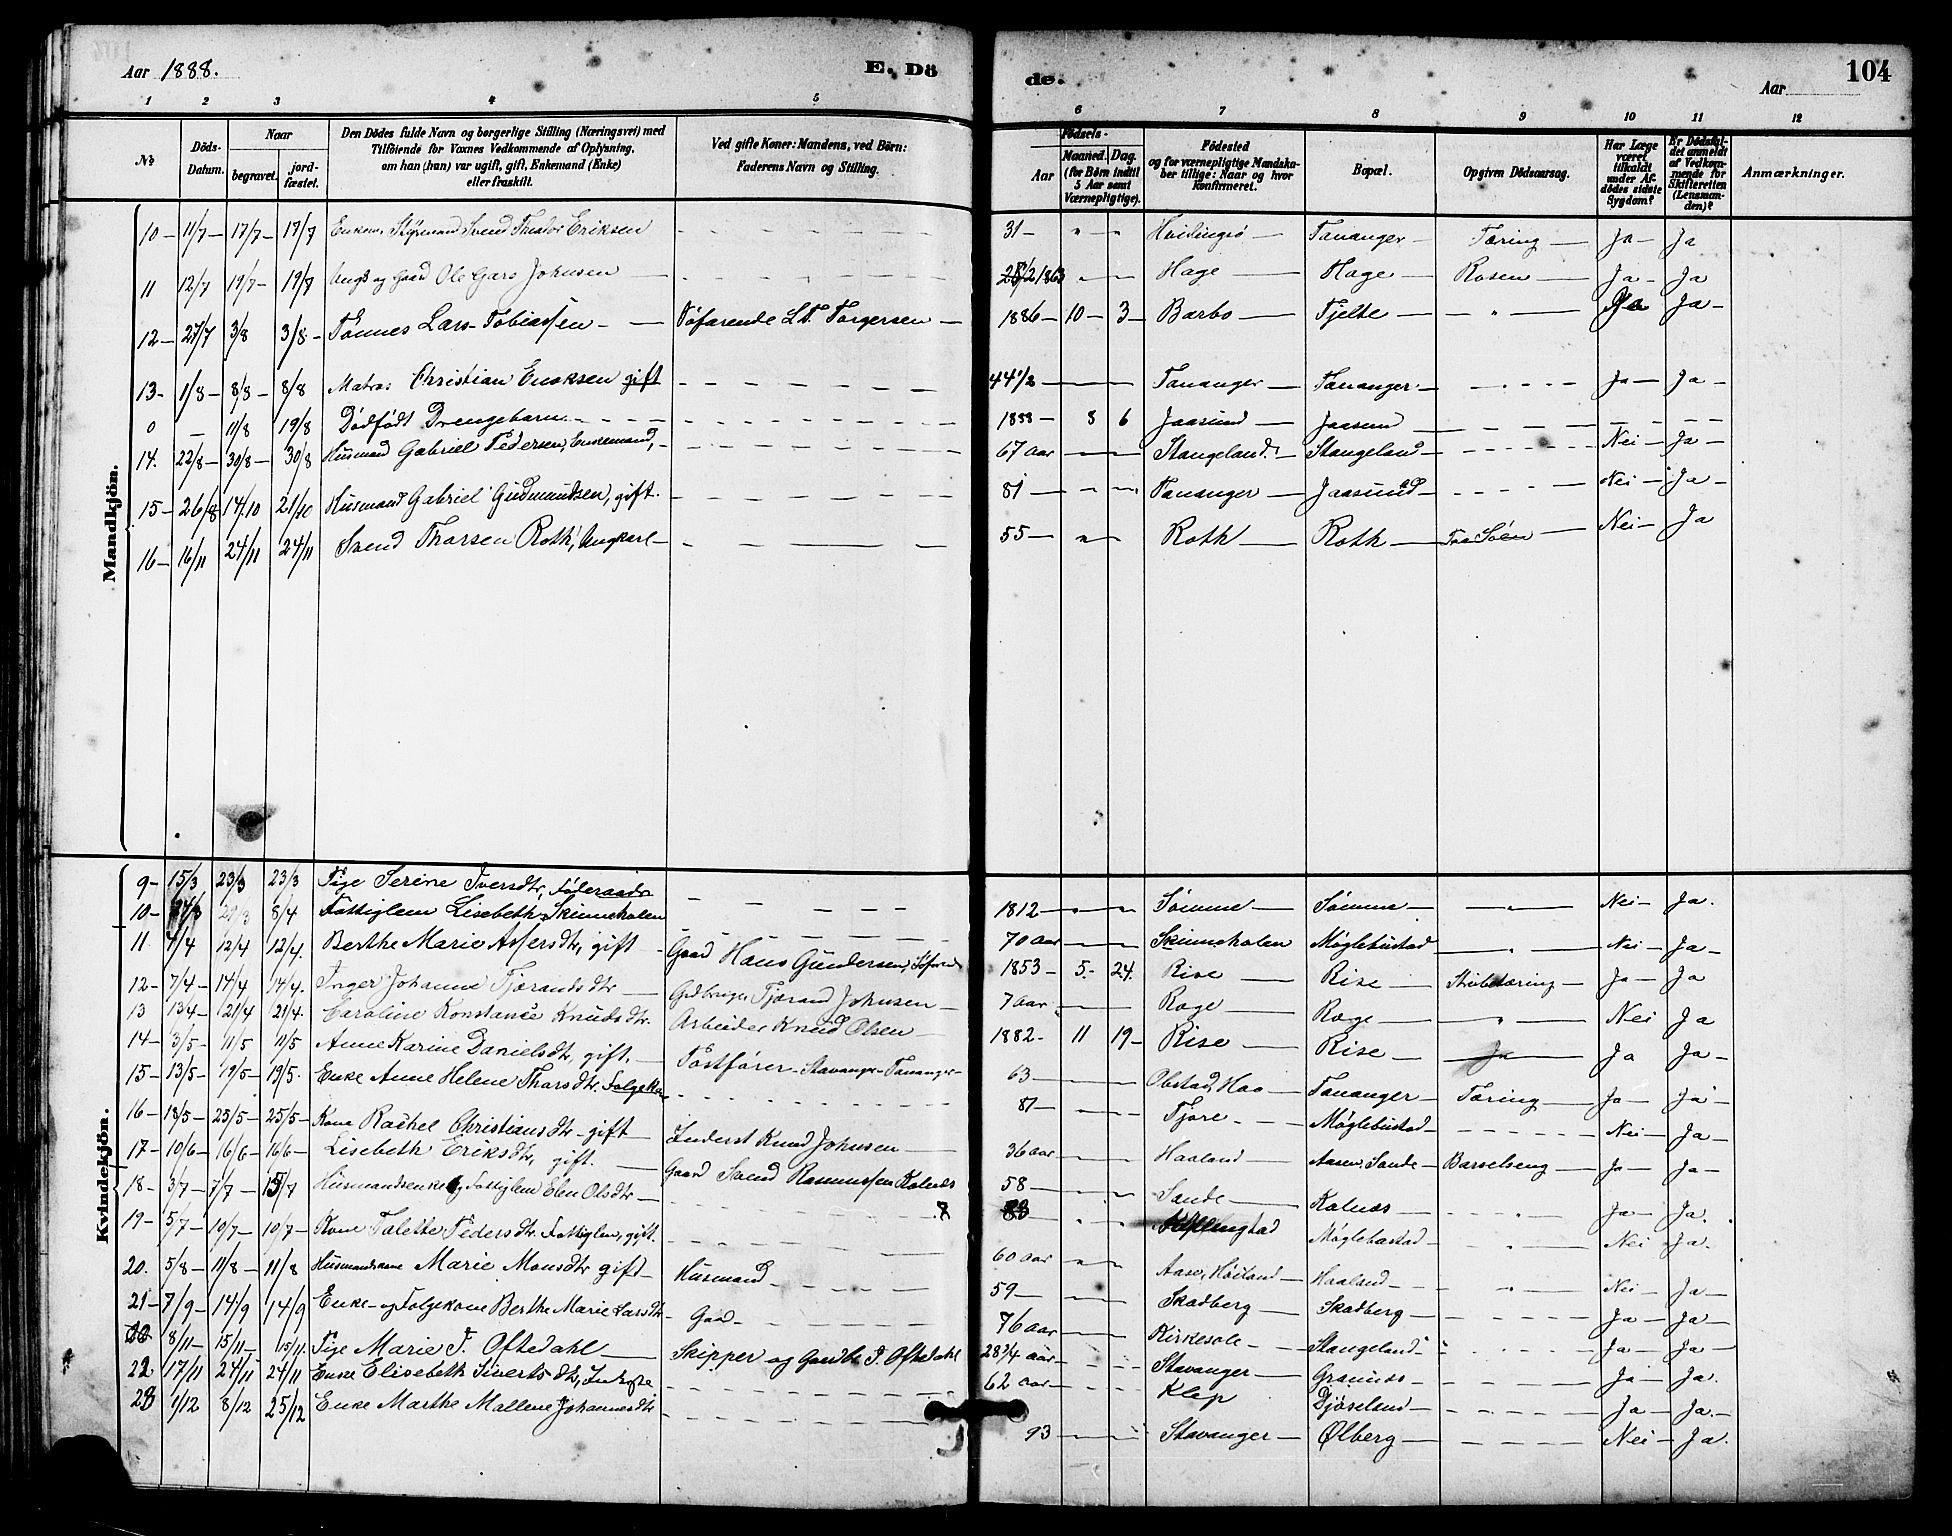 Aar 1888. E. Dö de. Aar 104
1 2 3 4 5 6 7 8 9 10 11 12
No Döds-Datum. Naar begravet. jord-fæstet. Den Dödes fulde Navn og borgerlige Stilling (Næringsvei) med Tilföiende for Voxnes Vedkommende af Oplysning, om han (hun) var ugift, gift, Enkemand (Enke) eller fraskilt. Ved gifte Koner: Mandens, ved Börn: Faderens Navn og Stilling. Födsels- Aar Maaned. Dag. (for Börn indtil 5 Aar samt Værnepligtige). Födested og for værnepligtige Mandskaber tillige: Naar og hvor konfirmeret. Bopæl. Opgiven Dödsaarsag. Har Læge været tilkaldt under Afdödes sidste Sygdom? Er Dödsfaldet anmeldt af Vedkommende for Skifteretten (Lensmanden)? Anmærkninger.
Mandkjön.
10 – 11/7 – 17/7 – 17/7 Enkem. Styrmand Svend Theodor Eriksen 31 – Hvidingsö – Tananger – Tæring – Ja – Ja
11 12/7 19/7 – 19/7 Ole Gars Johnsen /2 1863 Hage – Hage – Rosen – Ja – Ja
12 – 27/7 3/8 3/8 – Tönnes Lars Tobiassen – Söfarende L. T. Torgersen – 1886 – 10 – 3 – Barbo – Tjelte – " – Ja Ja –
13 – 1/8 – 8/8 – 8/8 Matros Christian Enoksen gift 44 1/2 – Tananger – Tananger – Ja – Ja –
0 – 11/8 19/8 Dödfödt Drengebarn – 1888 – 8 6 Jaasund – Jaasund –
14. 22/8 – 30/8 – 30/8 Husmand Gabriel Pedersen, Enkemand, – 67 aar – Stangeland – Stangeland – Nei – Ja –
15 – 26/8 14/10 21/10 Husmand Gabriel Gudmundsen, gift. 81 – Tananger – Jaasund – Nei – Ja –
16 – 16/11 24/11 24/11 Svend Thorsen Roth, Ungkarl – 55 – Roth – Roth – Nei – Ja
Kvindekjön.
9 – 15/3 23/3 23/3 Pige Serine Iversdtr, Föderaads 1812 – Sömme – Sömme – " – Nei – Ja.
10 – 8/4 Fattiglem Lisebeth Skinneholen 70 aar – Skinneholen Möglebustad – " – Nei – Ja –
11. 4/4 12/4 12/4. Berthe Marie Assersdtr, gift – Gaard Hans Gundersen, 1853 – 5. – 24. Rise – Rise – Ja – Ja
12 – 7/4 – 14/4 14/4. Inger Johanne Tjærandsdtr – Gdbruger Tjærand Johnsen – 7 aar – Roge – Roge – " – Nei Ja
13 13/4 – 21/4 21/4. Caroline Konstance Knudsdtr. Arbeider Knud Olsen 1882 – 11 19 – Rise – Rise – Ja – Ja –
14 – 3/5 – 11/5 11/5 Anne Karine Danielsdtr, gift. – Postförer – Stavanger – Tananger – 63 – Obstad, Haa – Tananger – Tæring – Ja – Ja –
15 – 13/5 – 19/5 – 19/5. Enke Anne Helene Thorsdtr. Folgekone 81 – Tjore – Möglebustad – Nei – Ja –
16 – 18/5 – 25/5 – 25/5 Kone Rachel Christiansdtr – gift – Inderst Knud Johnsen – 36 aar – Haaland – Aasen, Sande – Barselseng – Ja – Ja –
17 – 10/6 – 16/6 – 16/6 – Lisebeth Eriksdtr, gift. – Gaard Svend Rasmussen Kolnæs 58 – Sande – Kolnæs – Ja – Ja.
18 – 3/7 – 7/7 – 15/7 Husmandsenke og Fattiglem Elen Olsdtr – Möglebustad – " – Nei Ja.
19 – 5/7 – 10/7 – 10/7 – Kone Talette Pedersdtr. Fattiglem, gift. 60 aar – Aase, Höiland – Haaland – " – Nei – Ja –
20. 5/8 – 11/8 – 11/8 Husmandskone Marie Monsdtr gift – Husmand – 59 – Skadberg – Skadberg – Ja – Ja –
21 – 7/9 – 14/9 14/9 Enke – og Folgekone Berthe Marie Larsdtr – Gaard – 76 aar – Kirkesole – Stangeland – Ja – Ja –
22 8/11 – 15/11 – 15/11. Pige Marie T. Oftedahl – Skipper og Gaardbr. P. Oftedahl 28 3/4 aar – Stavanger – Ja – Ja.
22 17/11 24/11 24/11 Enke Elisebeth Siverts dtr, 62 aar – Klep – Ja – Ja. –
23 1/12 8/12 25/12 Enke Marthe Mallene Johannesdtr 93 – Stavanger – Ölberg – Nei – Ja.